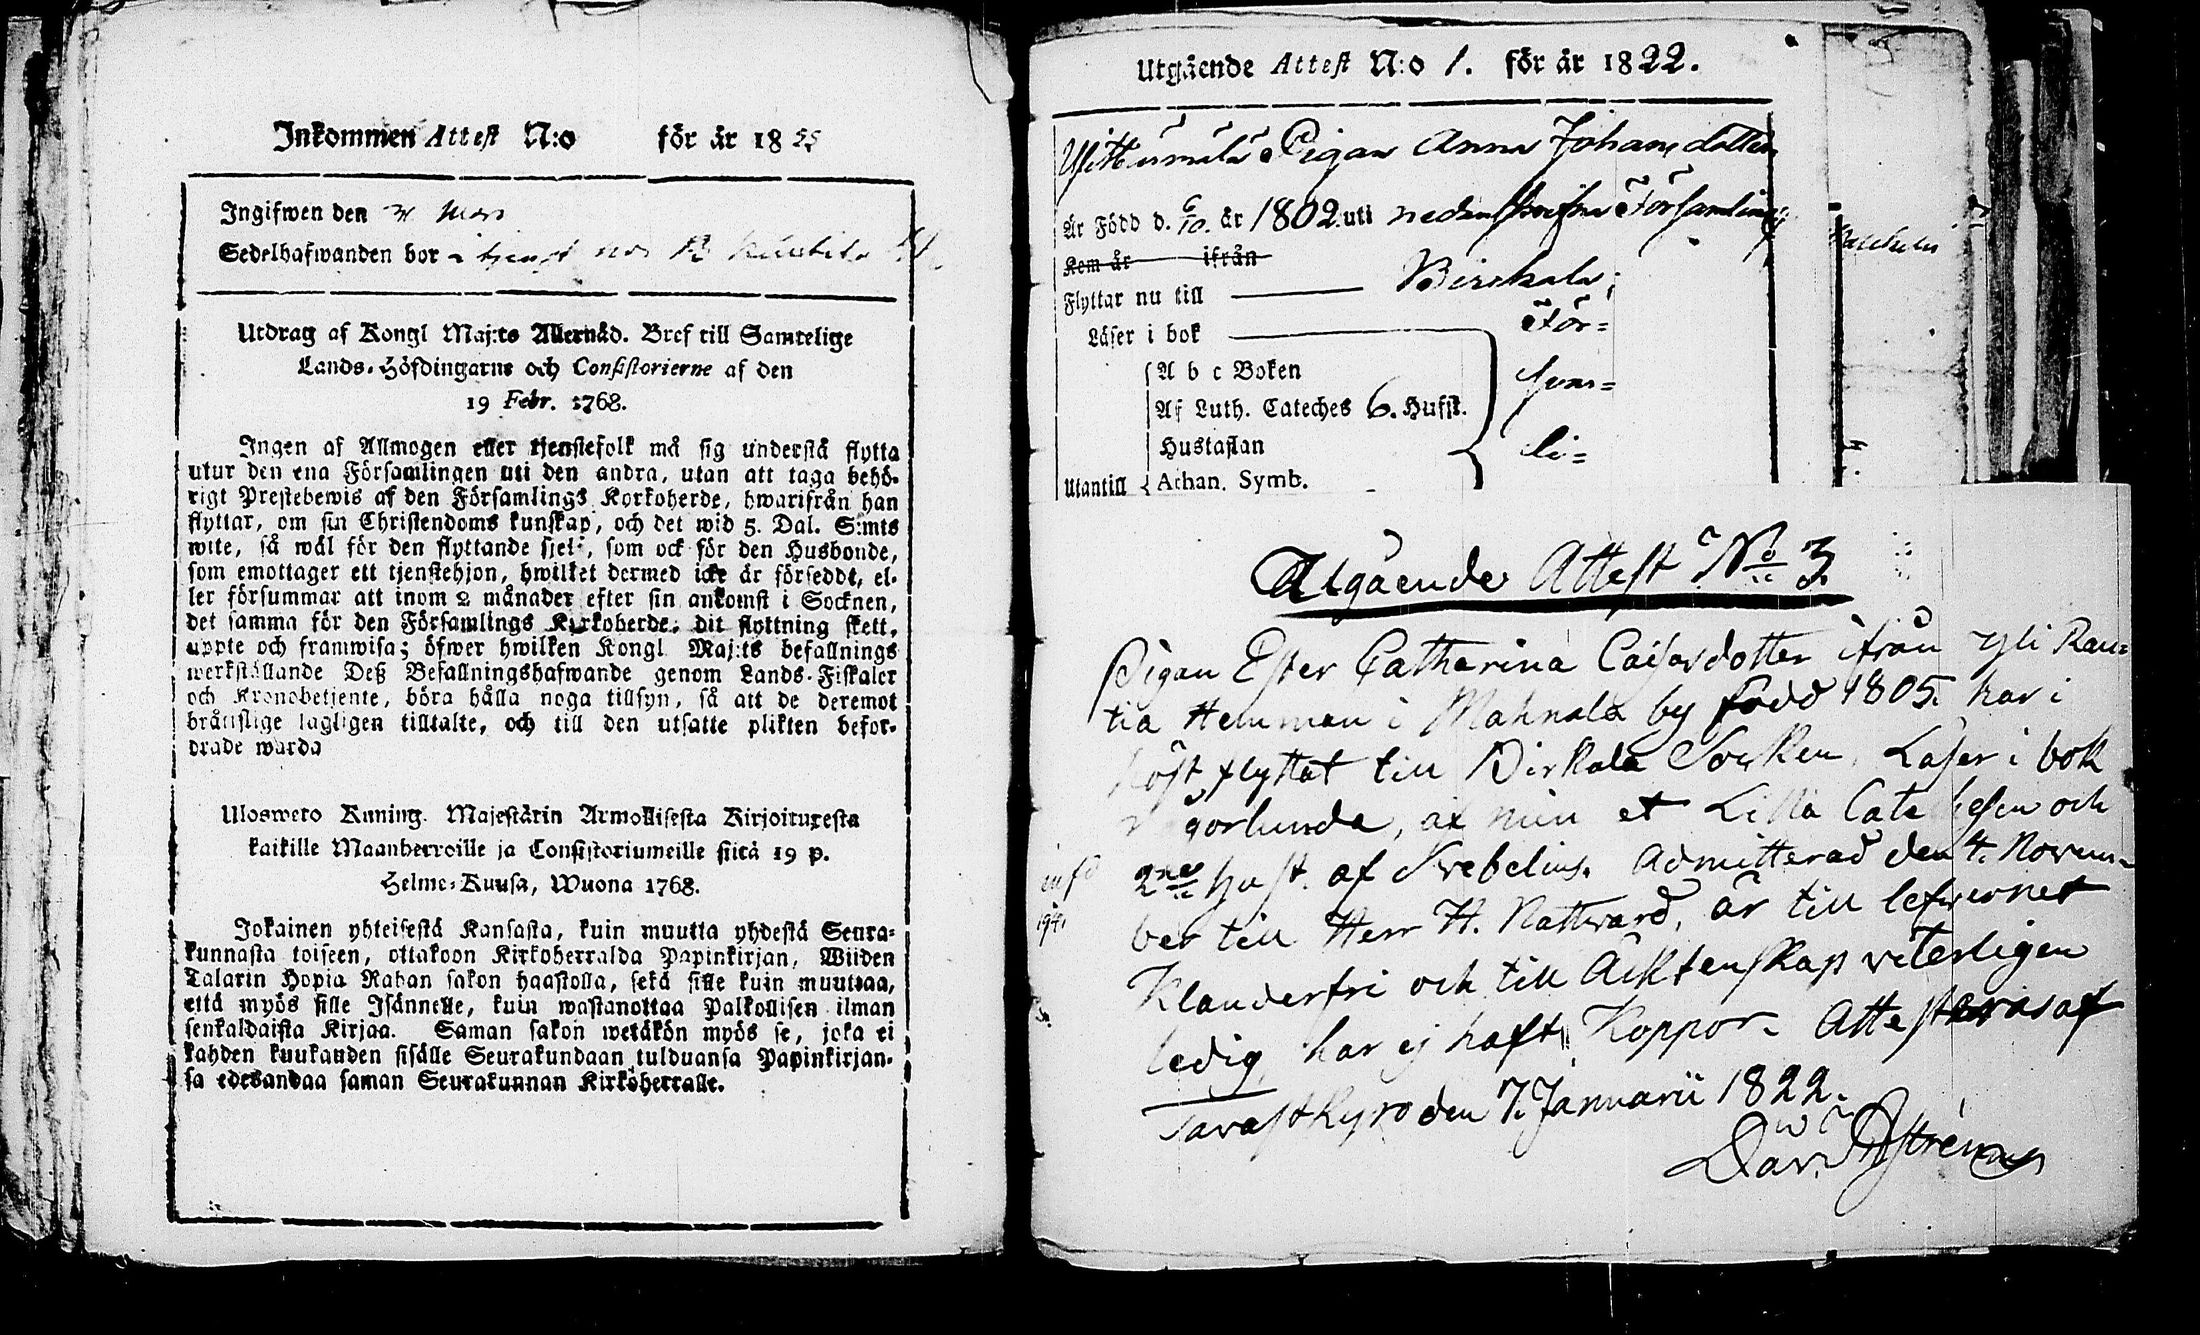 Inkommen Attest N:o för år 18
Ingifwen den 31 Mars
Sedelhafwanden bor i tjenst
Utdrag af Kongl Maj:ts Allernåd. Bref till Samtelige
Lands-Höfdingarne och Consistorierne af den
19 Febr. 1768.
Ingen af Allmogen eller tjenstefolk må sig understå flytta
utur den ena Församlingen uti den andra, utan att taga behö-
rigt Prestebewis af den Församlings Korkoherde, hwarifrån han
flyttar, om sin Christendoms kunskap, och det wid 5. Dal. S:mts
wite, så wäl för den flyttande sjelf, som ock för den Husbonde,
som emottager ett tjenstehjon, hwilket dermed icke är förseddt, el-
ler försummar att inom 2 månader efter sin ankomst i Socknen,
det samma för den Församlings Kirkoherde, dit flyttning skett,
uppte och framwisa; öfwer hwilken Kongl. Maj:ts befallnings
werkställande Deß Befallningshafwande genom Lands-Fiskaler
och Kronobetjente, böra hålla noga tillsyn, så att de deremot
bråttslige lagligen tilltalte, och till den utsatte plikten befor-
drade warda
Uloswero Kuning. Majestärin Armollisesta Kirjoituxesta
kaikille Maanherroille ja Consistoriumeille siitä 19 p.
Helme-Kuusa, Wuona 1768.
Jokainen yhteisestä Kansasta, kuin muutta yhdestä Seura-
kunnasta toiseen, ottakoon Kirkoherralda Papinkirjan, Wiiden
Talarin Hopia Rahan sakon haastolla, sekä sille kuin muuttaa,
että myös sille Isännelle, kuin wastanottaa Palkollisen ilman
senkaldaista Kirjaa. Saman sakon wetäkön myös se, joka ei
kahden kuukauden sisälle Seurakundaan tulduansa Papinkirjan-
sa edesandaa saman Seurakunnan Kirkoherralle.
Utgående Attest N:o 1. för år 1822.
Pigan Anna Johansdotter
Är Född d. 6/10. år 1802 uti nedanskrifne Församling
Kom år ifrån
Flyttar nu till Birckala;
Läser i bok För=
A b c Boken
Af Luth. Cateches 6. Hufst. svar=
Hustaflan li=
Utantill Athan. Symb.
Utgående Attest No 3
Pigan Ester Catharina Caisasdotter ifrån Yli Rau=
tia Hemman i Mahnala by född 1805. har i
höst flyttat till Birkala Socken, Läser i bok
någorlunda, af minnet Lilla Catechesen och
2ne hufst. af Svebelius. Admitterad den 4. Novem=
ber till Herr H. Nattvard, är till lefvernet
Klanderfri och till Äcktenskap veterligen
ledig, har ej haft Koppor. Attesteras af
Tavastkyro den 7. Januarii 1822.
Dav.